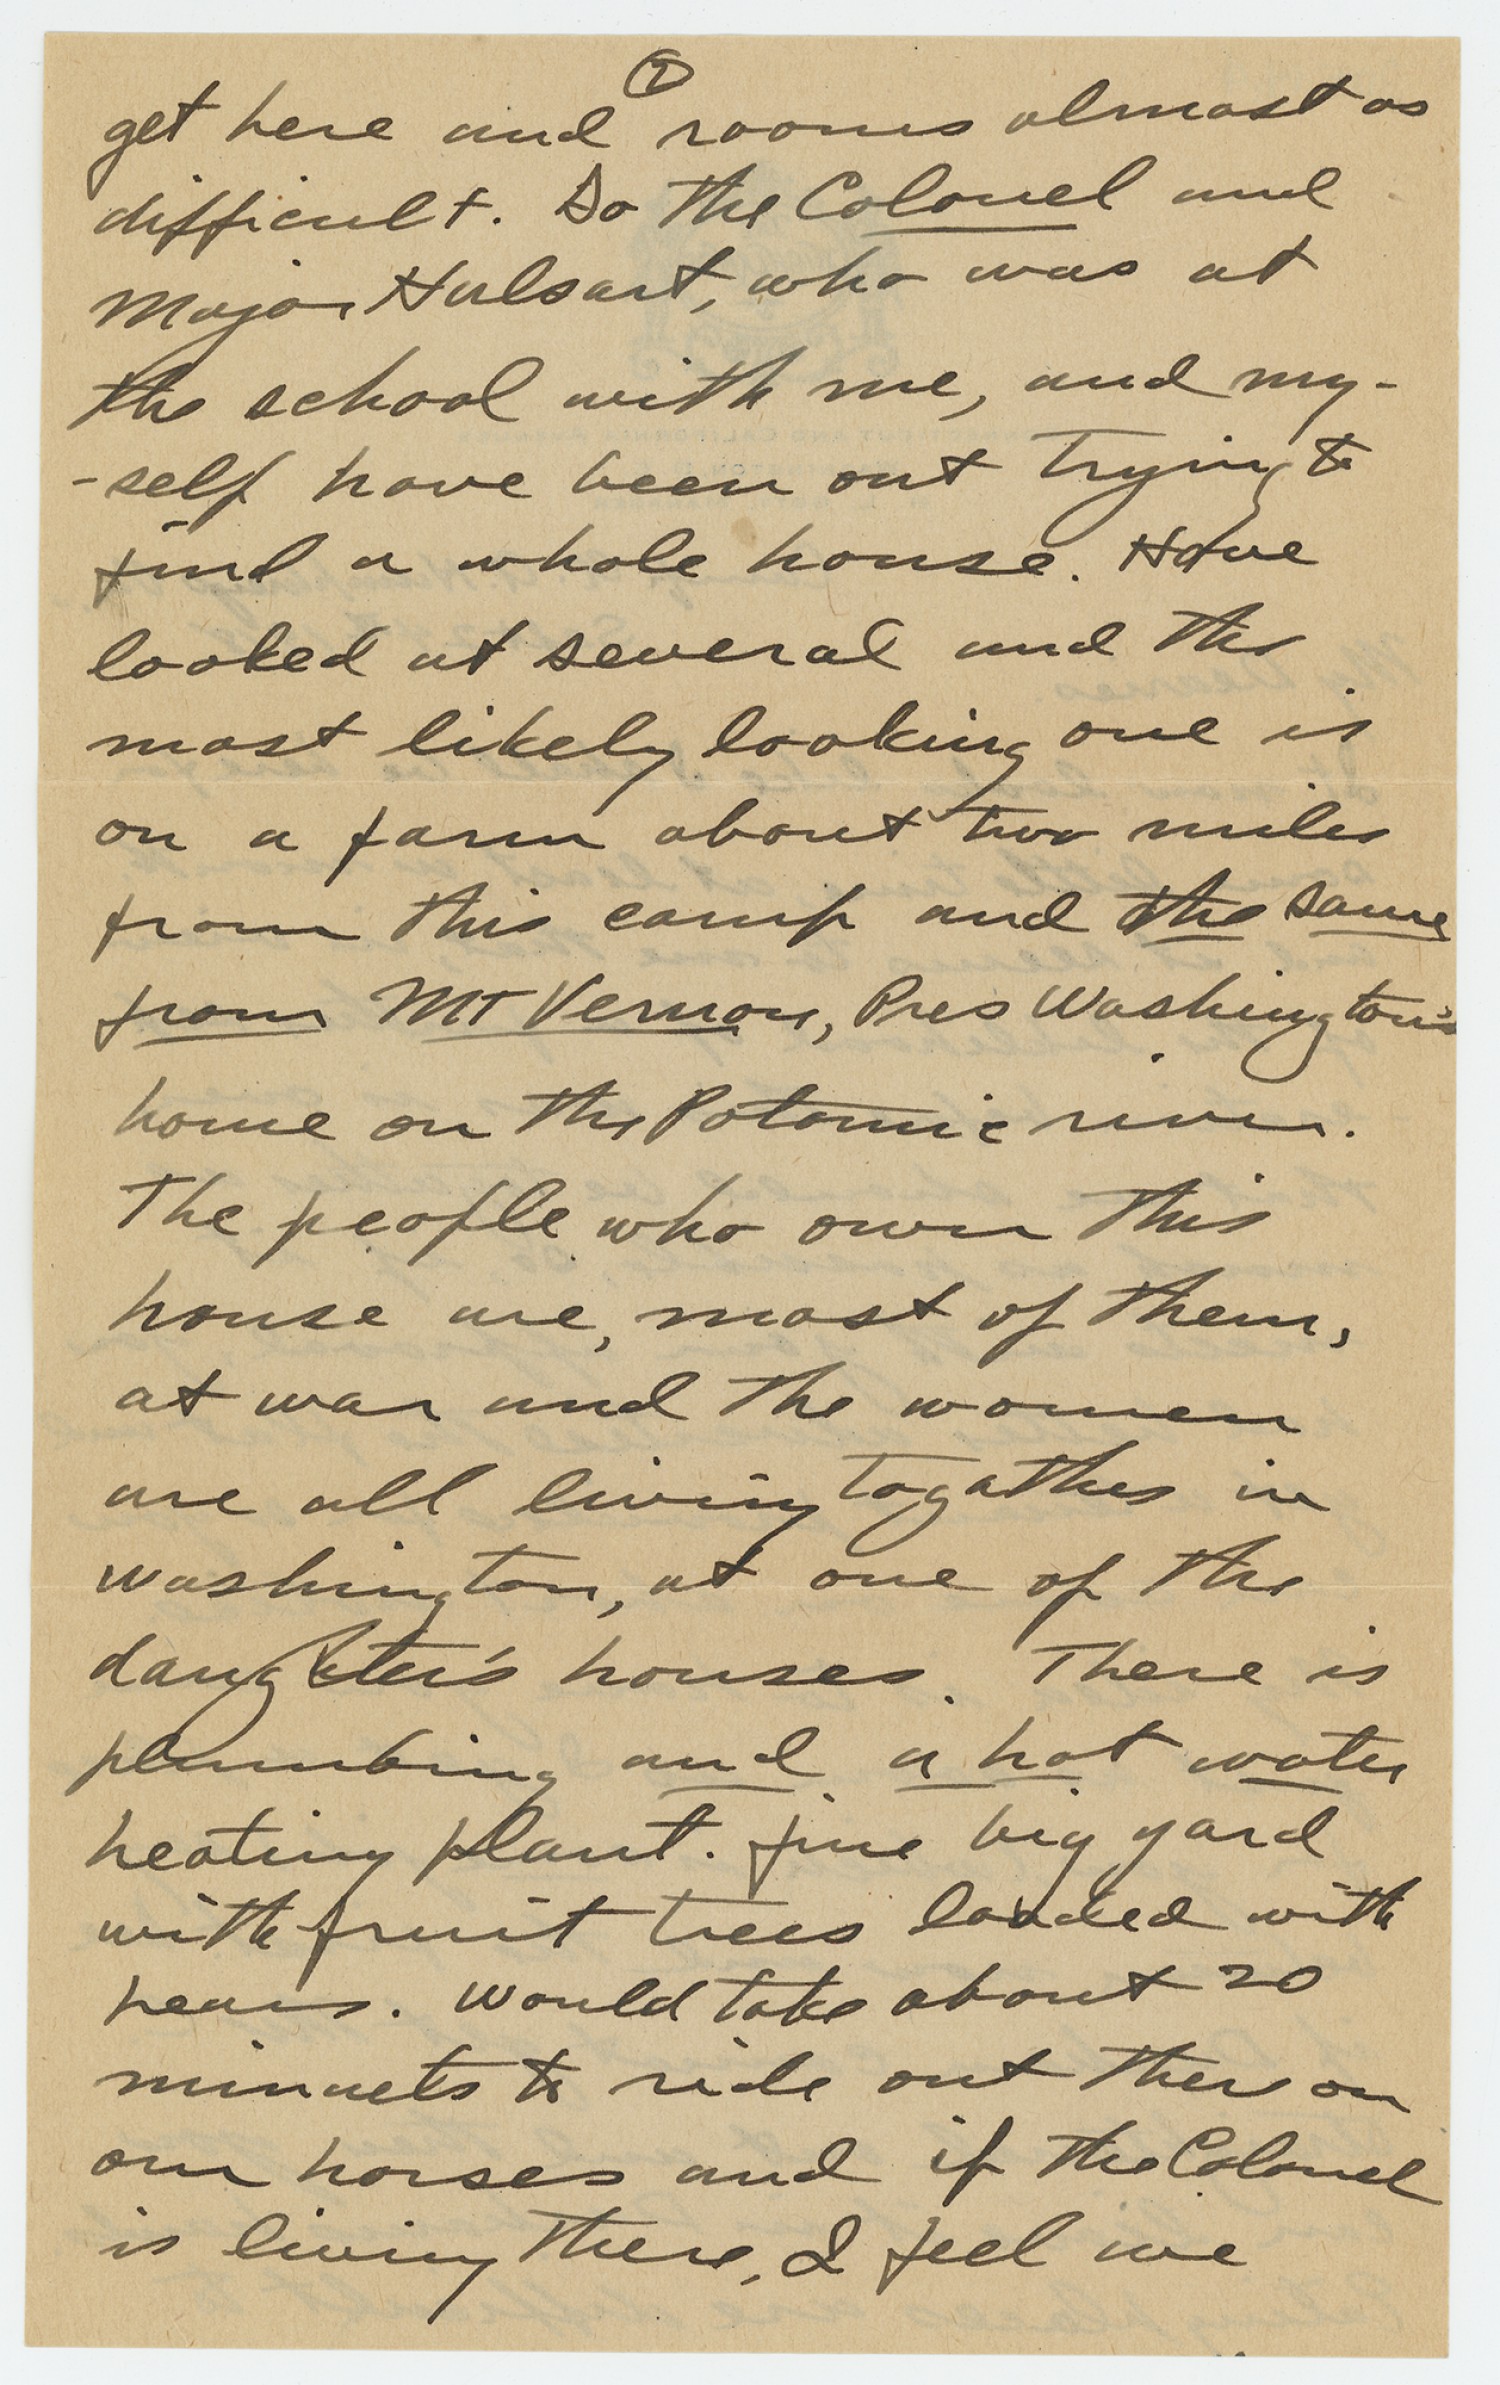 get here and rooms almost as
difficult. So the Colonel and
Major Hulsart, who was at
the school with me, and my-
-self have been out trying to
find a whole house. Have
looked at several and the
most likely looking one is
on a farm about two miles
from this camp and the same
from Mt Vernon, Pres Washington's
home on the Potomic river.
The people who own this
house are, most of them,
at war and the women
are all living togather in
Washington, at one of the
daughter's houses. There is
plumbing and a hot water
heating plant. Fine big yard
with fruit trees loaded with
pears. Would take about 20
minuets to ride out there on
our horses and if the Colonel
is living there, I feel we